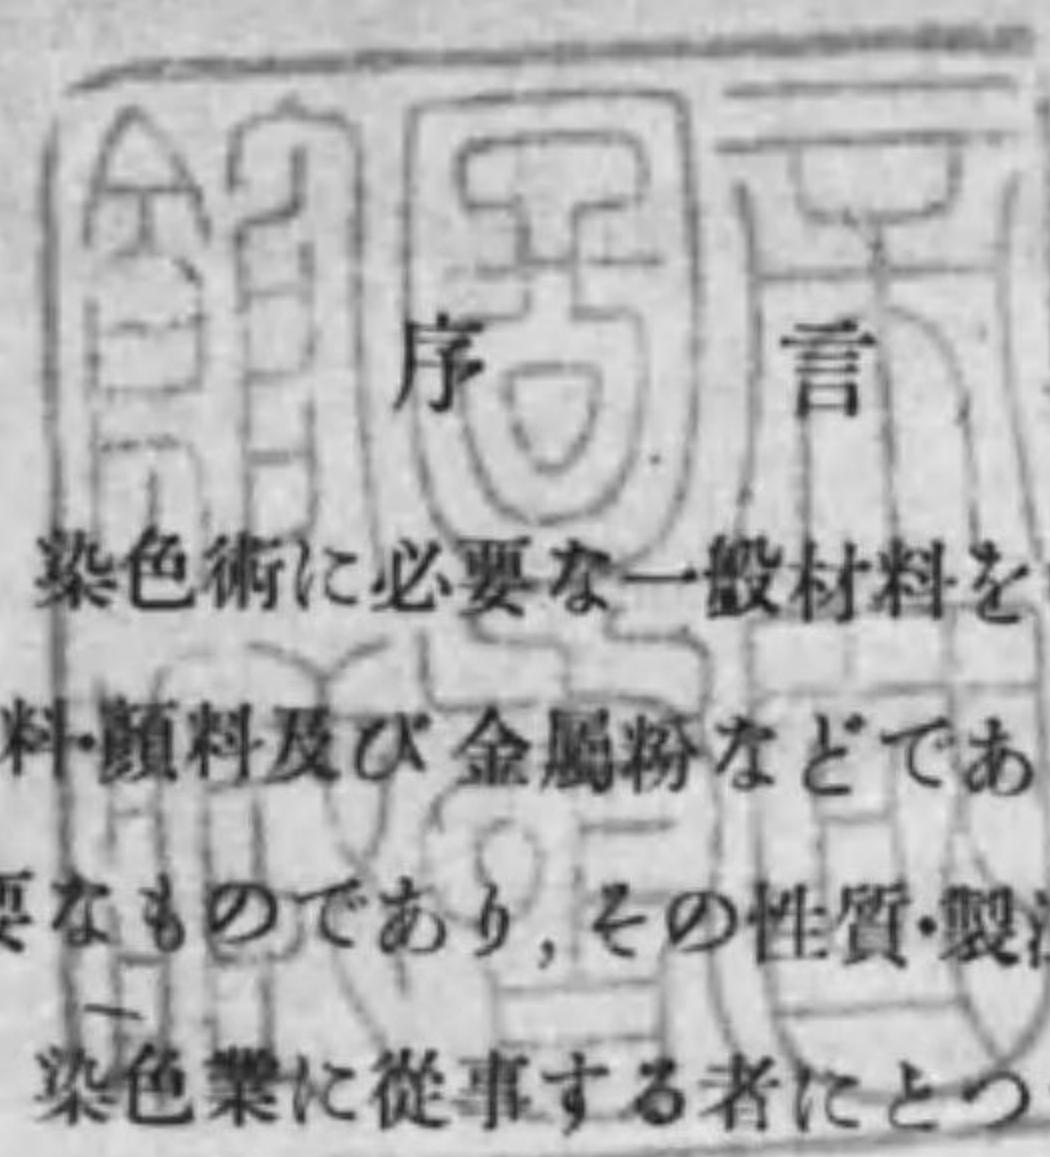 序言
染色術に必要な一般材料を
料・顔料及び金屬粉などであ
要なものであり,その性質・製法
染色業に從事する者にとつ